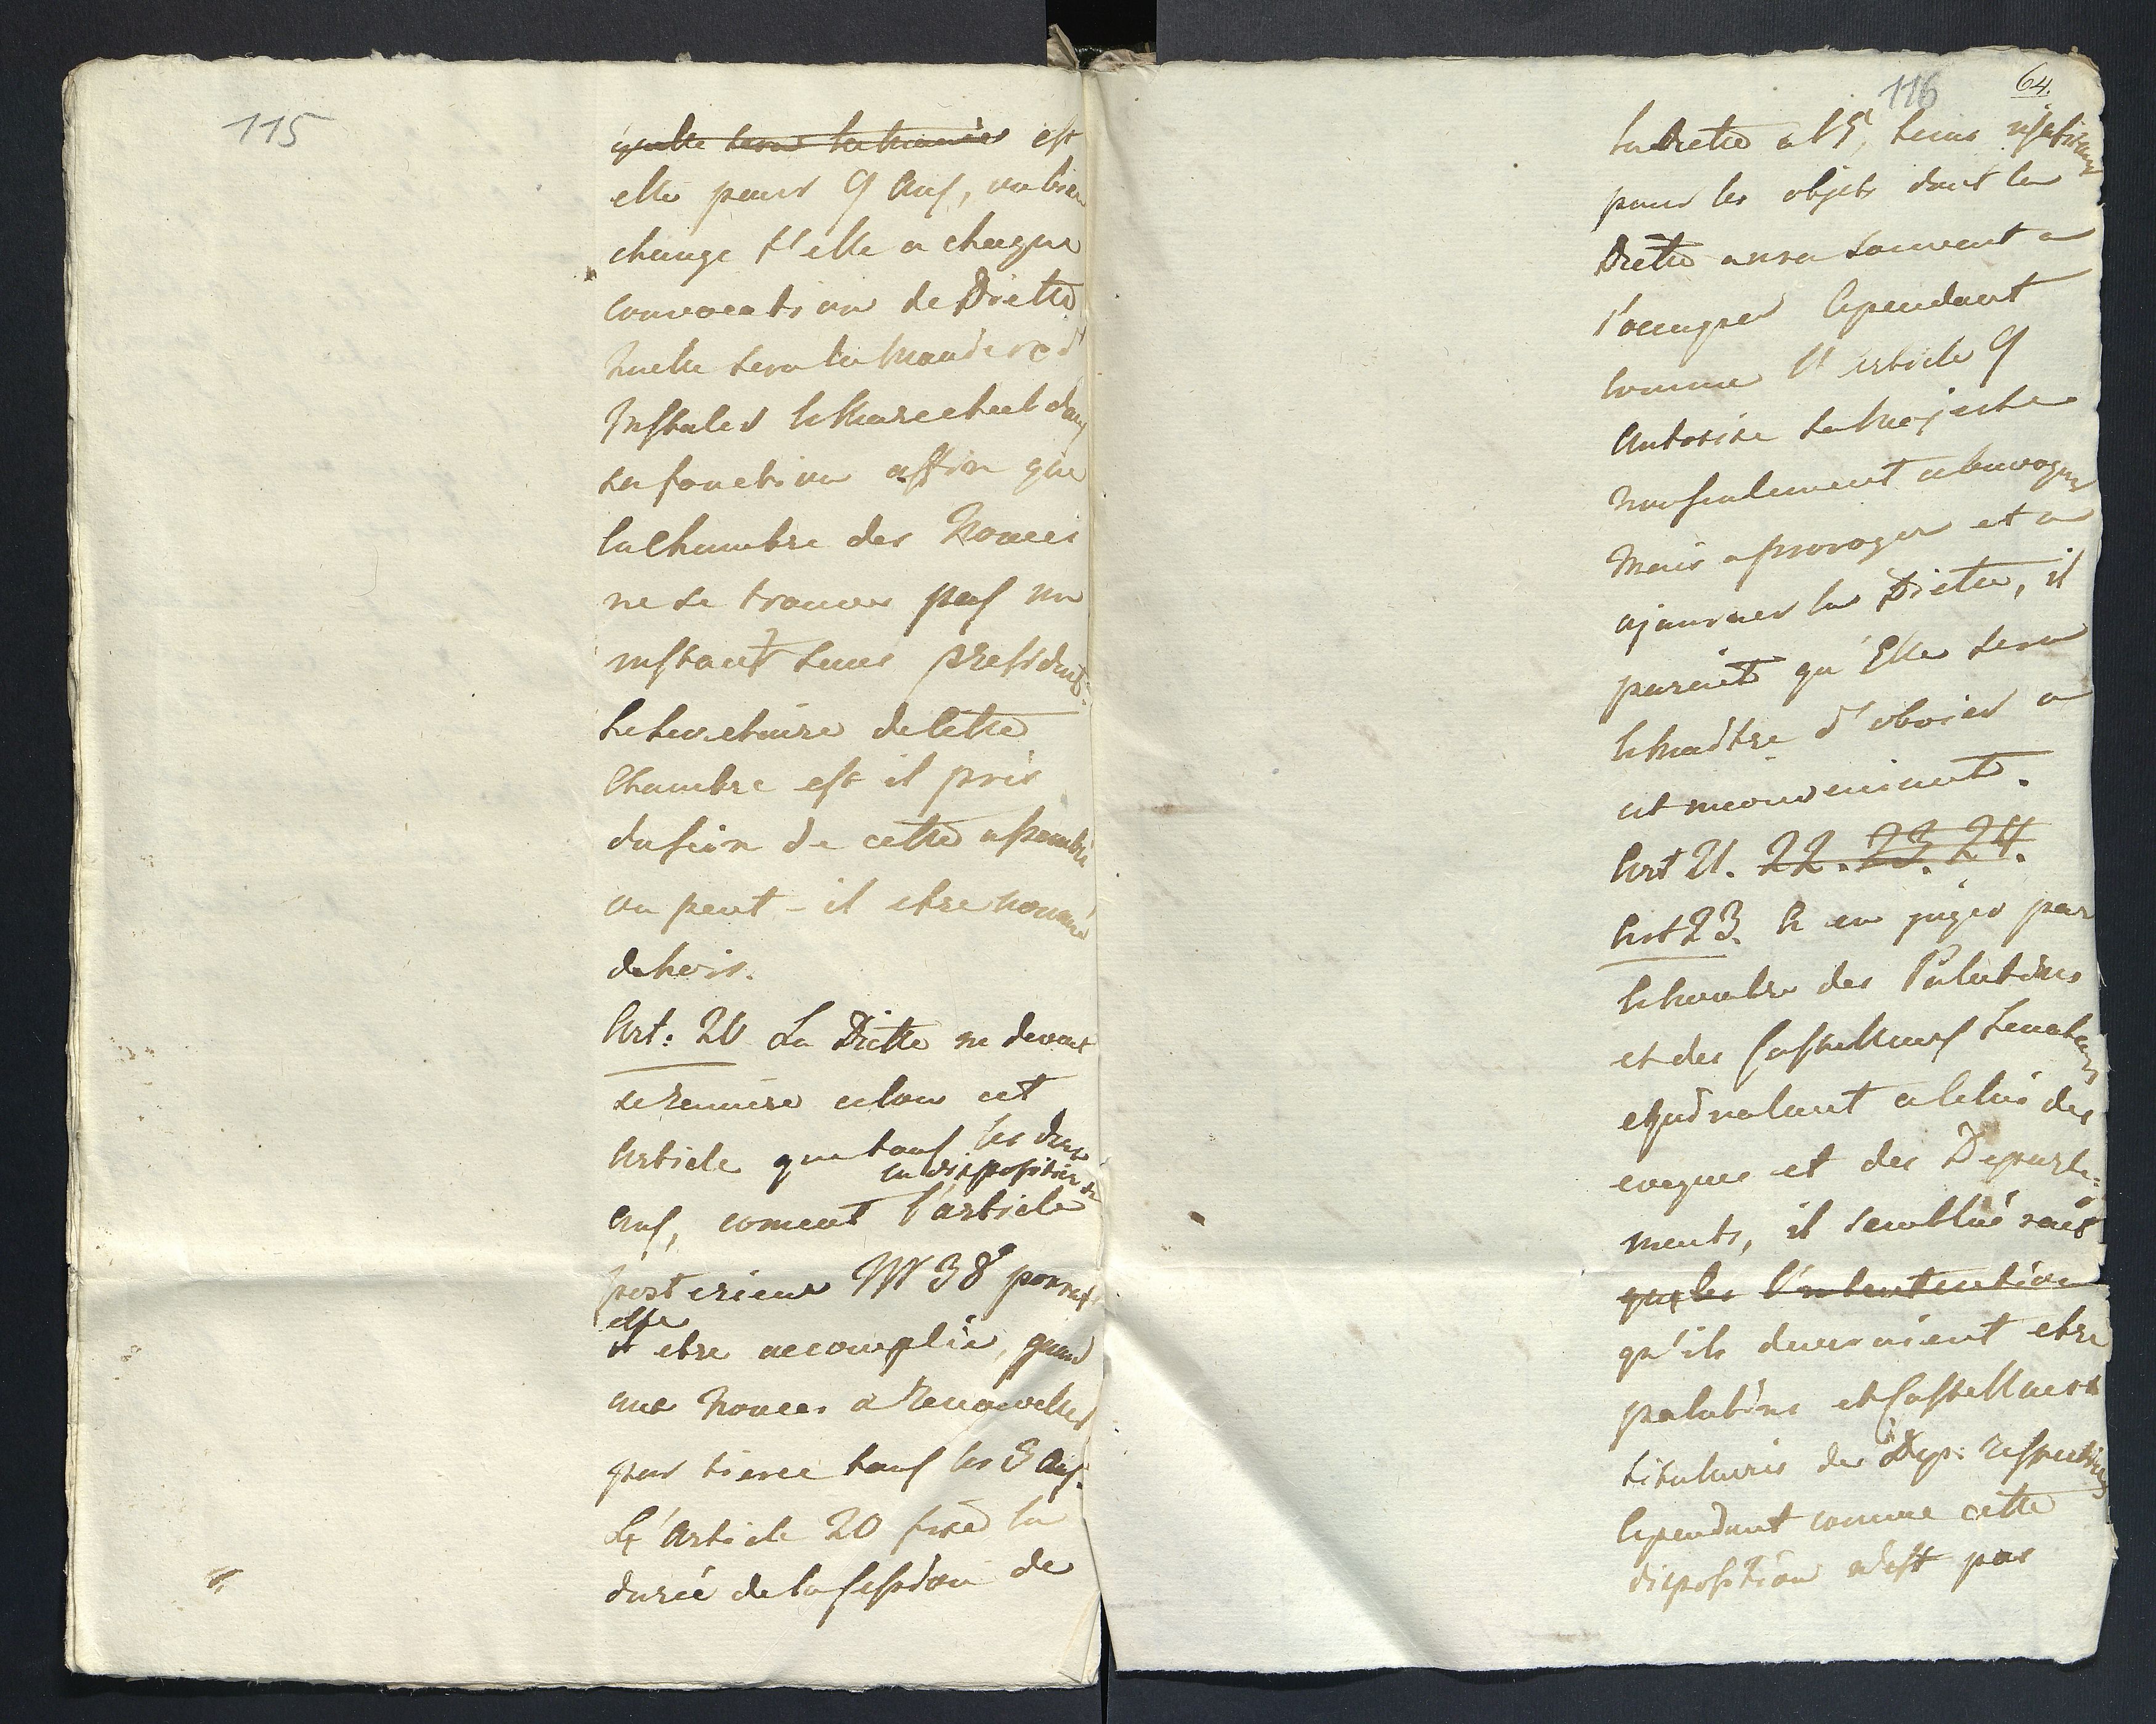 115
quelle sera la maniere est
elle pour 9 ans, ou bien
change t'elle a chaque
convocation de Diette
quelle sera la maniere d'
Instaler le Marechal dans
sa fonction affin que
la Chambre des Nonces
ne se trouve pas un
instant sans president.
Le Secretaire de cette
Chambre est il pris
du sein de cette assemblée
ou peut-il etre nommé
dehors.
Art: 20 La Diette ne devant
se reunire selon cet
Article que tous les deux
la disposition de
ans, coment l'article
posterieur N 38 pourra
elle
t etre accomplie, quand
aux Nonces a renouveller
par tierce tous les 3 ans.
L'Article 20 fixe la
durée de la session de
116
64.
la Diette a 15, tems
pour les objets dont la
Diette aura souvent a
s'occuper Cependant
comme l'article 9
Autorise Sa Majesté
non seulement a convoquer
Mais a proroger et a
ajourner la Diette, il
parait qu'Elle sera
le Maitre d'obvier a
cet inconvenient.
Art 21. 22. 23. 24.
Art 23. A en juger par
le Nombre des Palatins
et des Castellans Senateurs
equivalent a celui des
eveques et des Departe=
ments, il semblerait
que les l'intentention
qu'ils devraient etre
palatins et Castellans
titulaires des Dep: respectives
Cependant comme cette
disposition n'est pas